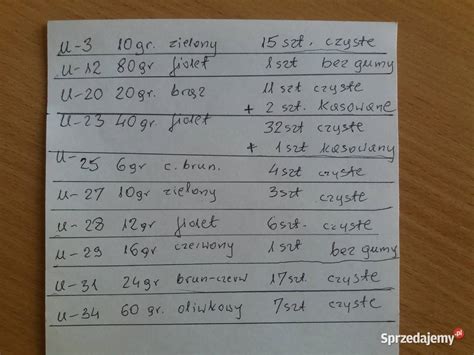 U-3 10gr. zielony 15szt. czyste
U-12 80gr fiolet 1szt bez gumy
U-20 20gr. brąz 11szt czyste
+ 2 szt. kasowane
U-23 40gr. fiolet 32szt czyste
+ 1szt kasowany
U-25 6gr c. brun. 4szt czyste
U-27 10gr zielony 3szt czyste
U-28 12gr fiolet 6szt. czyste
U-29 16gr czerwony 1szt bez gumy
U-31 24gr brun-czerw 17szt. czyste
U-34 60gr. oliwkowy 7szt czyste
Sprzedajemy.pl